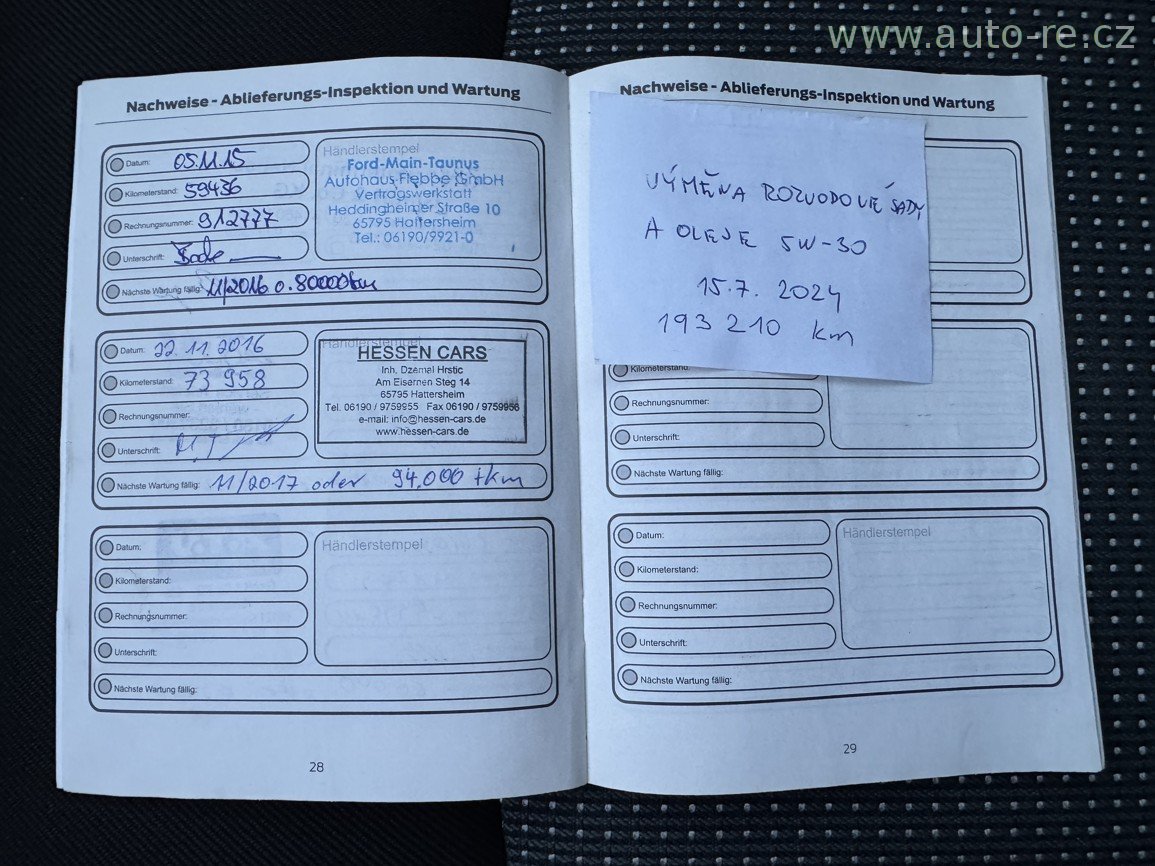 www.auto-re.cz
Nachweise - Ablieferungs-Inspektion und Wartung
Datum: 05.11.15
Kilometerstand: 59436
Rechnungsnummer: 912777
Unterschrift:
Nächste Wartung fällig: 11/2016 o. 80000km
Händlerstempel
Ford-Main-Taunus
Autohaus Flebbe GmbH
Vertragswerkstatt
Heddingheimer Straße 10
65795 Hattersheim
Tel.: 06190/9921-0
Datum: 22.11.2016
Kilometerstand: 73 958
Rechnungsnummer:
Unterschrift:
Nächste Wartung fällig: 11/2017 oder 94.000 tkm
Händlerstempel
HESSEN CARS
Inh. Dzemal Hrstic
Am Eisernen Steg 14
65795 Hattersheim
Tel. 06190 / 9759955 Fax 06190 / 9759956
e-mail: info@hessen-cars.de
www.hessen-cars.de
Datum:
Kilometerstand:
Rechnungsnummer:
Unterschrift:
Nächste Wartung fällig:
Händlerstempel
28
Nachweise - Ablieferungs-Inspektion und Wartung
VÝMĚNA ROZVODOVÉ SADY
A OLEJE 5W-30
15.7. 2024
193 210 km
Kilometerstand:
Rechnungsnummer:
Unterschrift:
Nächste Wartung fällig:
Datum:
Kilometerstand:
Rechnungsnummer:
Unterschrift:
Nächste Wartung fällig:
Händlerstempel
29